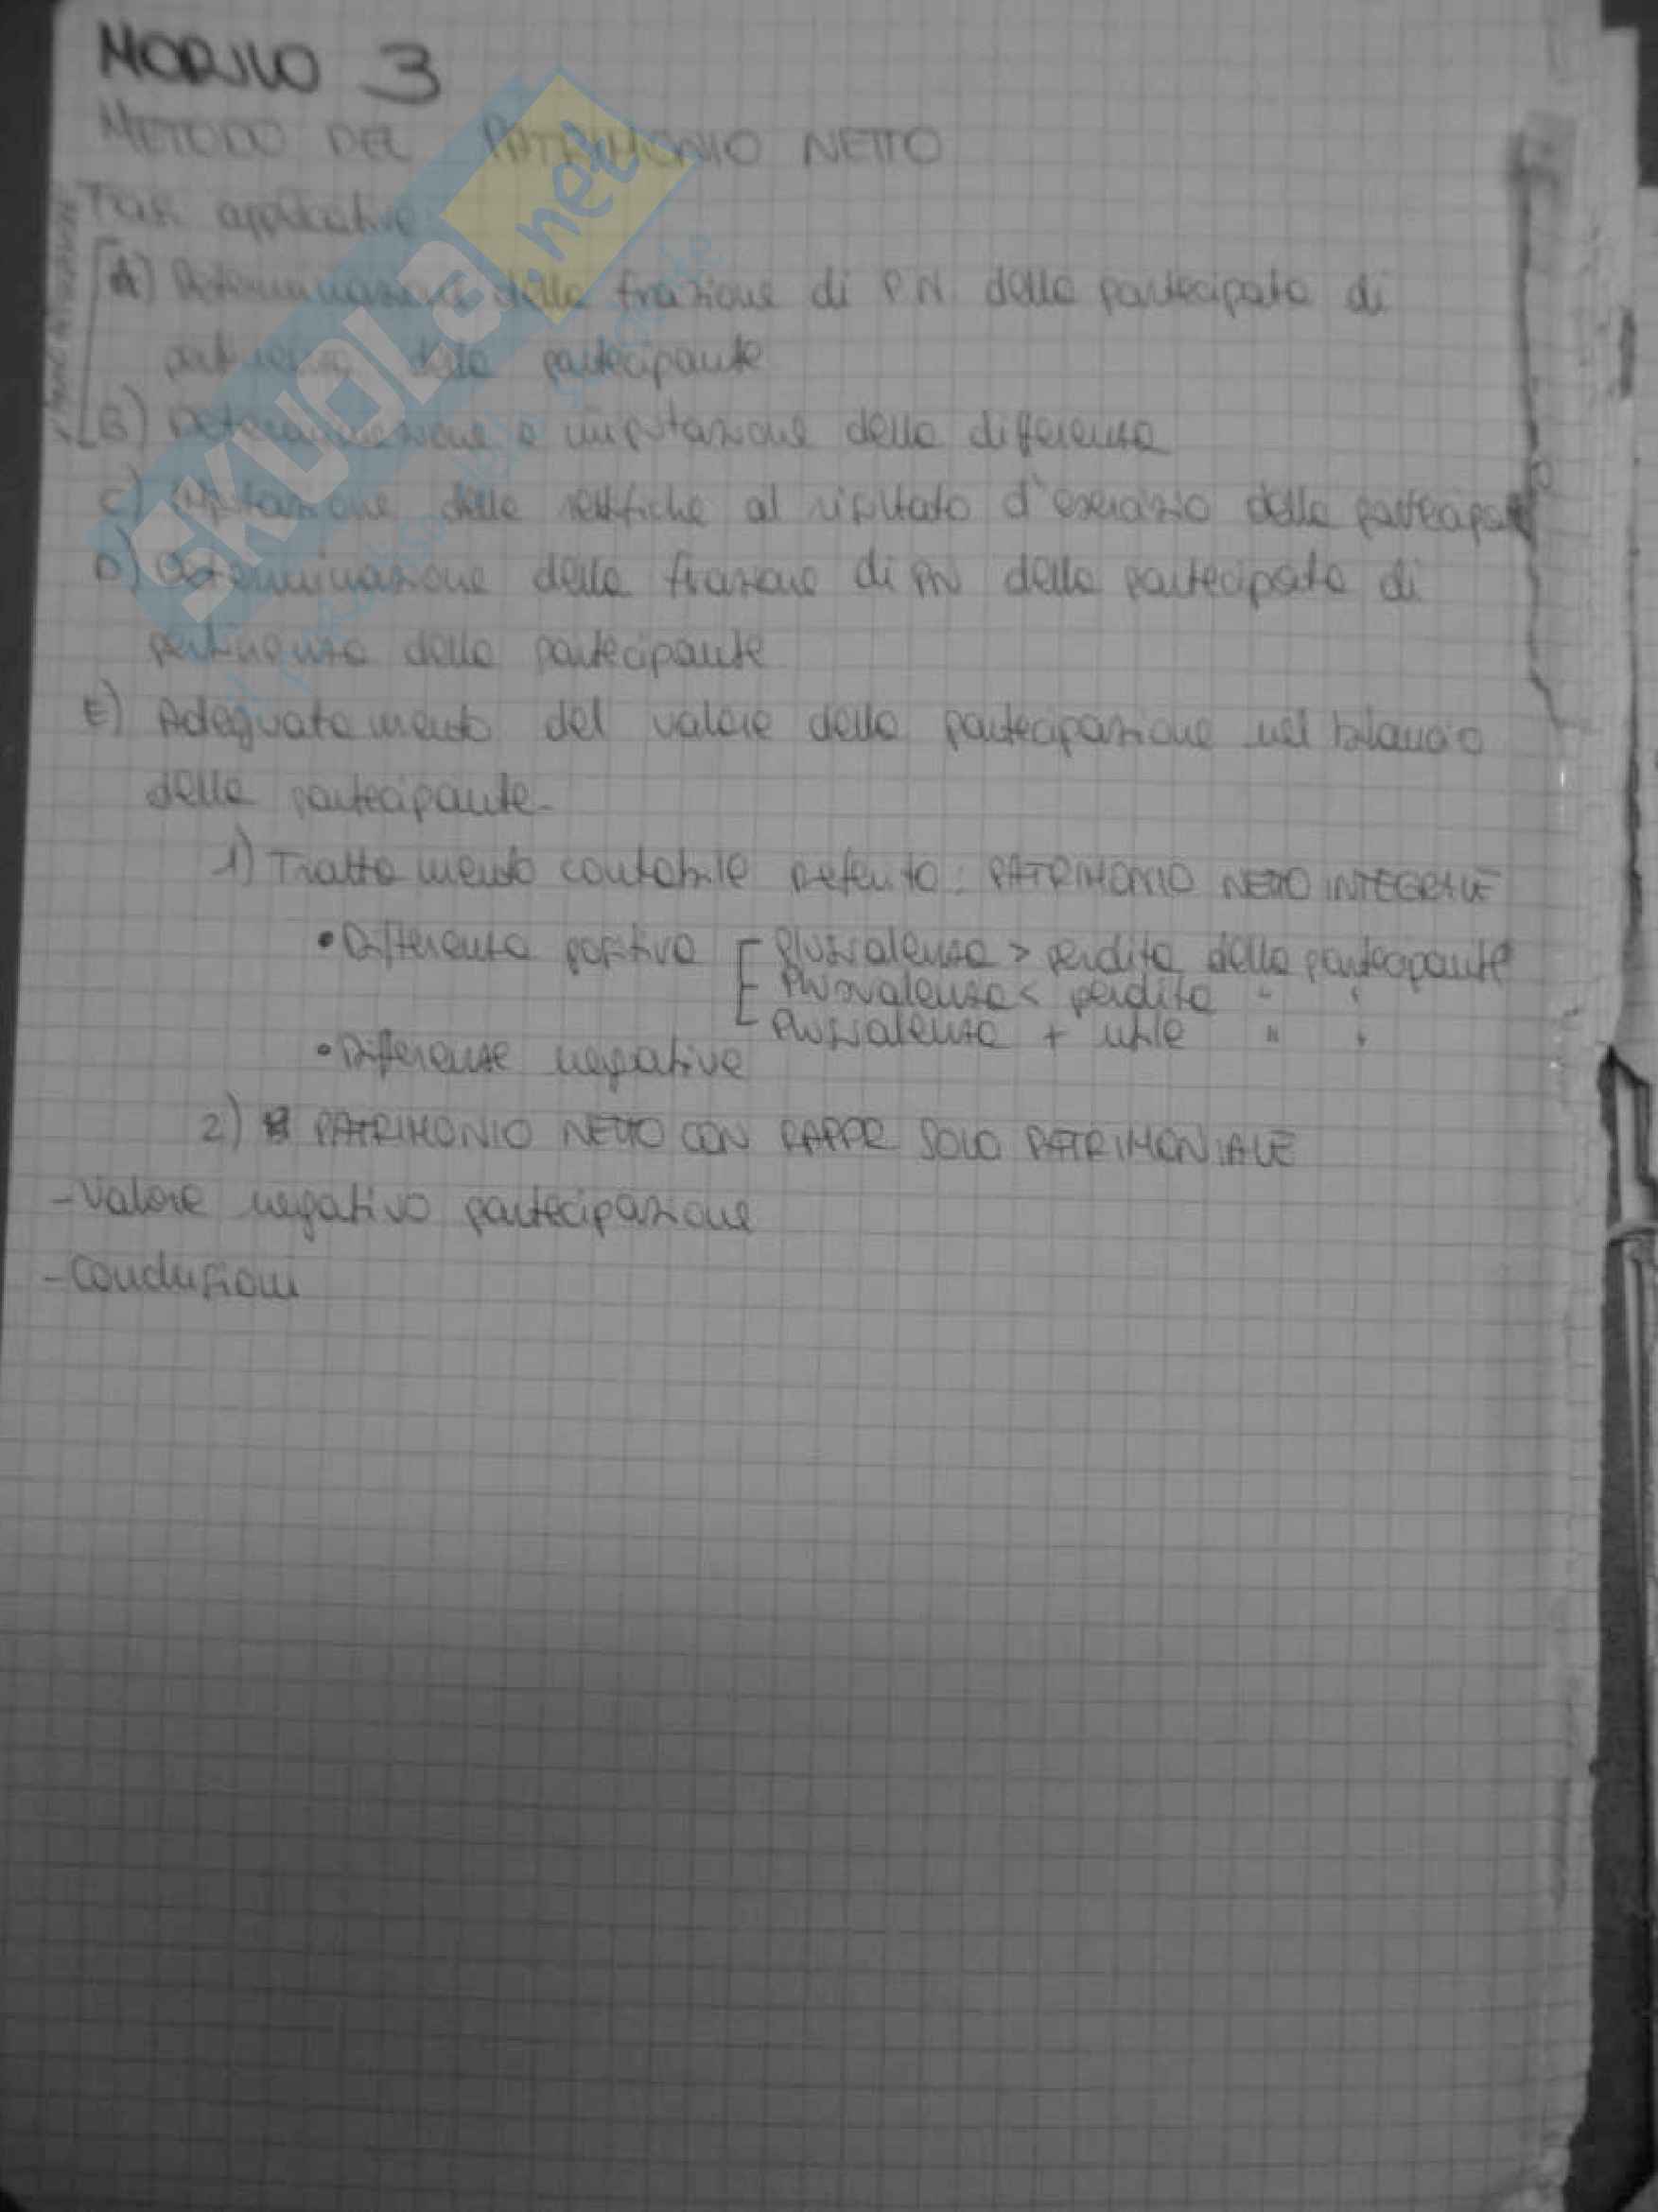 MODULO 3
METODO DEL PATRIMONIO NETTO
Fasi applicative
A) Determinazione della frazione di P.N. della partecipata di
pertinenza della partecipante
B) Determinazione e imputazione della differenza
C) Imputazione delle rettifiche al risultato d'esercizio della partecipata
D) Determinazione della frazione di PN della partecipata di
pertinenza della partecipante
E) Adeguatamento del valore della partecipazione nel bilancio
della partecipante.
1) Trattamento contabile preferito: PATRIMONIO NETTO INTEGRALE
• Differenza positiva Plusvalenza > perdita della partecipante
Plusvalenza < perdita " "
Plusvalenza + utile " "
• Differenze negative
2) PATRIMONIO NETTO CON RAPPR SOLO PATRIMONIALE
- Valore negativo partecipazione
- Conclusioni
SKUOLA.net